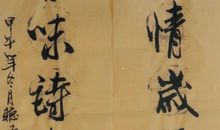 情歲
味詩
甲午年冬月